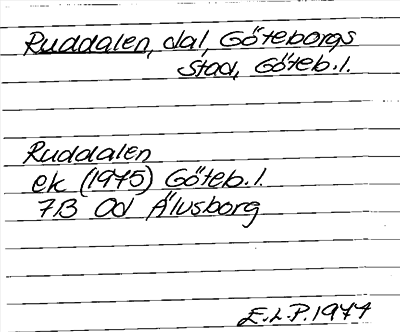 Ruddalen, dal, Göteborgs
stad, Göteb.l.
Ruddalen
ek (1975) Göteb.l.
7B Od Älvsborg
E.L.P. 1977